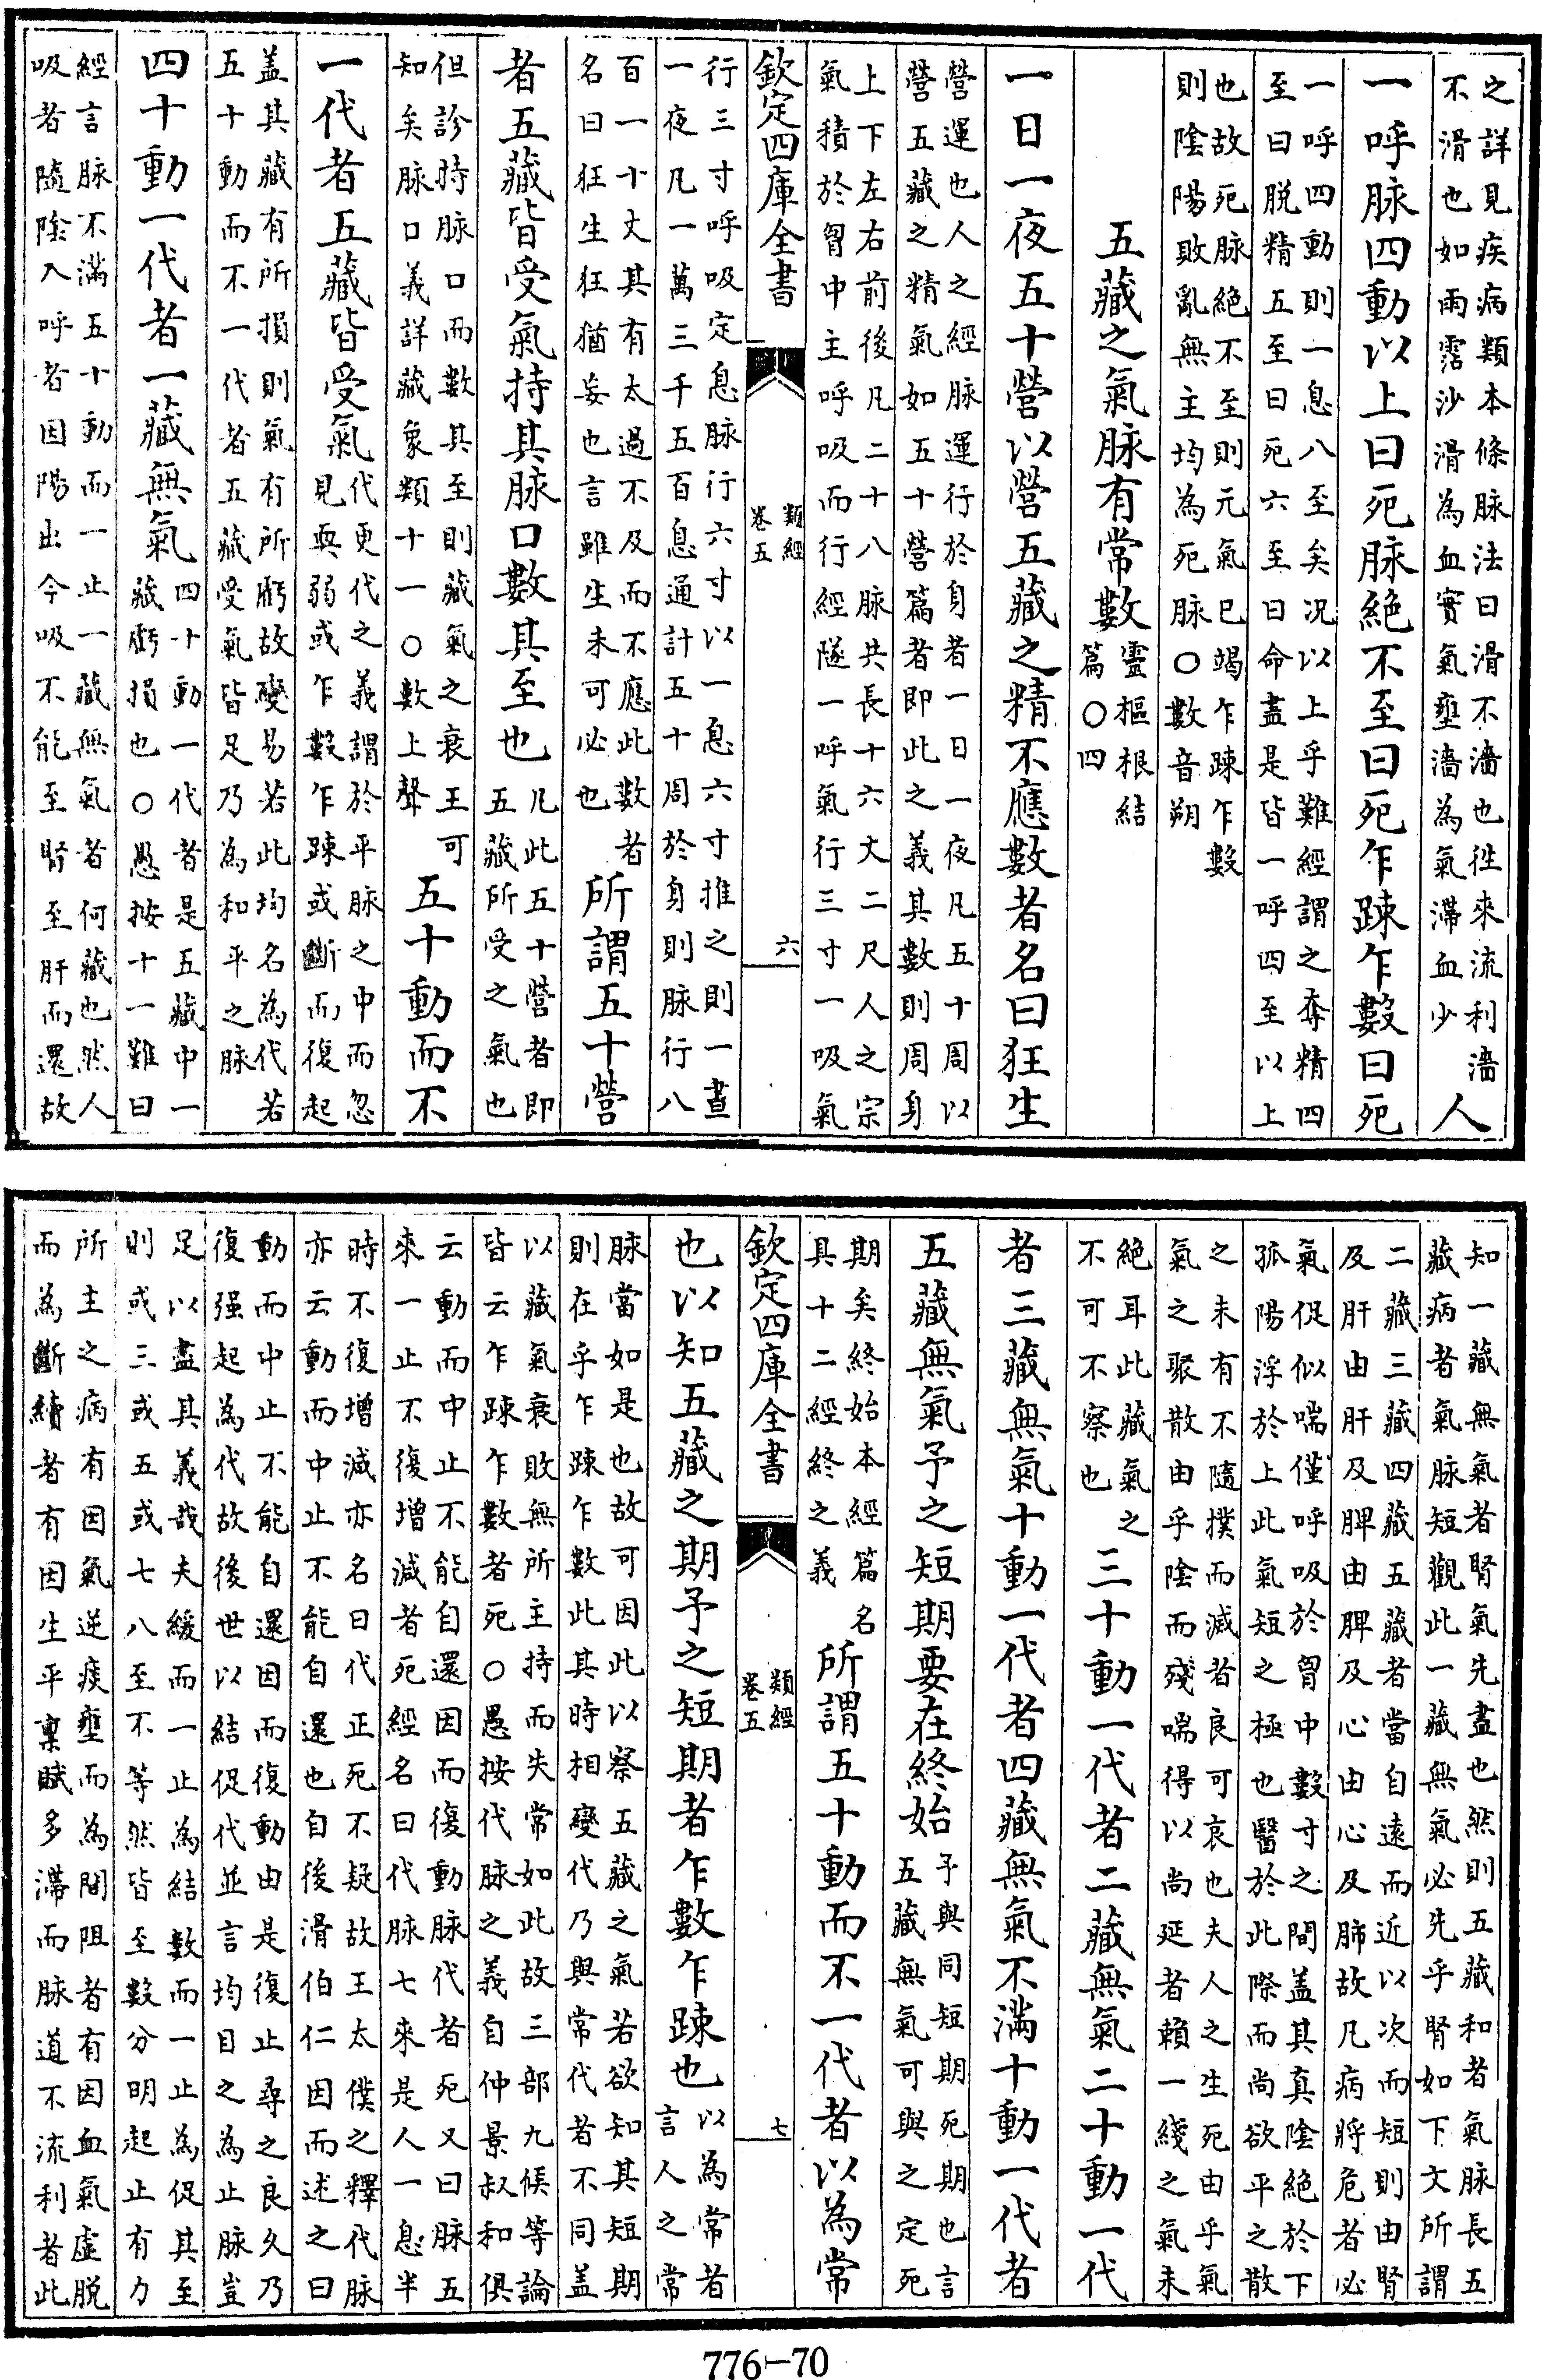 之詳見疾病類本條脉法曰滑不濇也徃來流利濇
不滑也如雨霑沙滑為血實氣壅濇為氣滯血少人
一呼脉四動以上曰死脉絶不至曰死乍踈乍數曰死
一呼四動則一息八至矣况以上乎難經謂之奪精四
至曰脱精五至曰死六至曰命盡是皆一呼四至以上
也故死脉絶不至則元氣已竭乍踈乍數
則陰陽敗亂無主均為死脉○數音朔
五藏之氣脉有常數靈樞根結
篇○四
一日一夜五十營以營五藏之精不應數者名曰狂生
營運也人之經脉運行於身者一日一夜凡五十周以
營五藏之精氣如五十營篇者即此之義其數則周身
上下左右前後凡二十八脉共長十六丈二尺人之宗
氣積於胷中主呼吸而行經隧一呼氣行三寸一吸氣
欽定四庫全書
類經
卷五
六
行三寸呼吸定息脉行六寸以一息六寸推之則一晝
一夜凡一萬三千五百息通計五十周於身則脉行八
百一十丈其有太過不及而不應此數者
名曰狂生狂猶妄也言雖生未可必也所謂五十營
者五藏皆受氣持其脉口數其至也凡此五十營者即
五藏所受之氣也
但診持脉口而數其至則藏氣之衰王可
知矣脉口義詳藏象類十一○數上聲五十動而不
一代者五藏皆受氣代更代之義謂於平脉之中而忽
見耎弱或乍數乍踈或斷而復起
盖其藏有所損則氣有所虧故變易若此均名為代若
五十動而不一代者五藏受氣皆足乃為和平之脉
四十動一代者一藏無氣四十動一代者是五藏中一
藏虧損也○愚按十一難曰
經言脉不滿五十動而一止一藏無氣者何藏也然人
吸者隨隂入呼者因陽出今吸不能至腎至肝而還故
知一藏無氣者腎氣先盡也然則五藏和者氣脉長五
藏病者氣脉短觀此一藏無氣必先乎腎如下文所謂
二藏三藏四藏五藏者當自遠而近以次而短則由腎
及肝由肝及脾由脾及心由心及肺故凡病將危者必
氣促似喘僅呼吸於胷中數寸之間盖其真陰絶於下
孤陽浮於上此氣短之極也醫於此際而尚欲平之散
之未有不隨撲而滅者良可哀也夫人之生死由乎氣
氣之聚散由乎陰而殘喘得以尚延者賴一綫之氣未
絶耳此藏氣之
不可不察也三十動一代者二藏無氣二十動一代
者三藏無氣十動一代者四藏無氣不滿十動一代者
五藏無氣予之短期要在終始予與同短期死期也言
五藏無氣可與之定死
期矣終始本經篇名
具十二經終之義所謂五十動而不一代者以為常
欽定四庫全書
類經
卷五
七
也以知五藏之期予之短期者乍數乍踈也以為常者
言人之常
脉當如是也故可因此以察五藏之氣若欲知其短期
則在乎乍踈乍數此其時相變代乃與常代者不同盖
以藏氣衰敗無所主持而失常如此故三部九候等論
皆云乍踈乍數者死○愚按代脉之義自仲景叔和俱
云動而中止不能自還因而復動脉代者死又曰脉五
來一止不復增減者死經名曰代脉七來是人一息半
時不復增減亦名曰代正死不疑故王太僕之釋代脉
亦云動而中止不能自還也自後滑伯仁因而述之曰
動而中止不能自還因而復動由是復止尋之良久乃
復强起為代故後世以結促代並言均目之為止脉豈
足以盡其義哉夫緩而一止為結數而一止為促其至
則或三或五或七八至不等然皆至數分明起止有力
所主之病有因氣逆痰壅而為間阻者有因血氣虛脱
而為斷續者有因生平稟賦多滯而脉道不流利者此
776-70